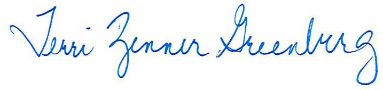 Terri Zenner Greenberg